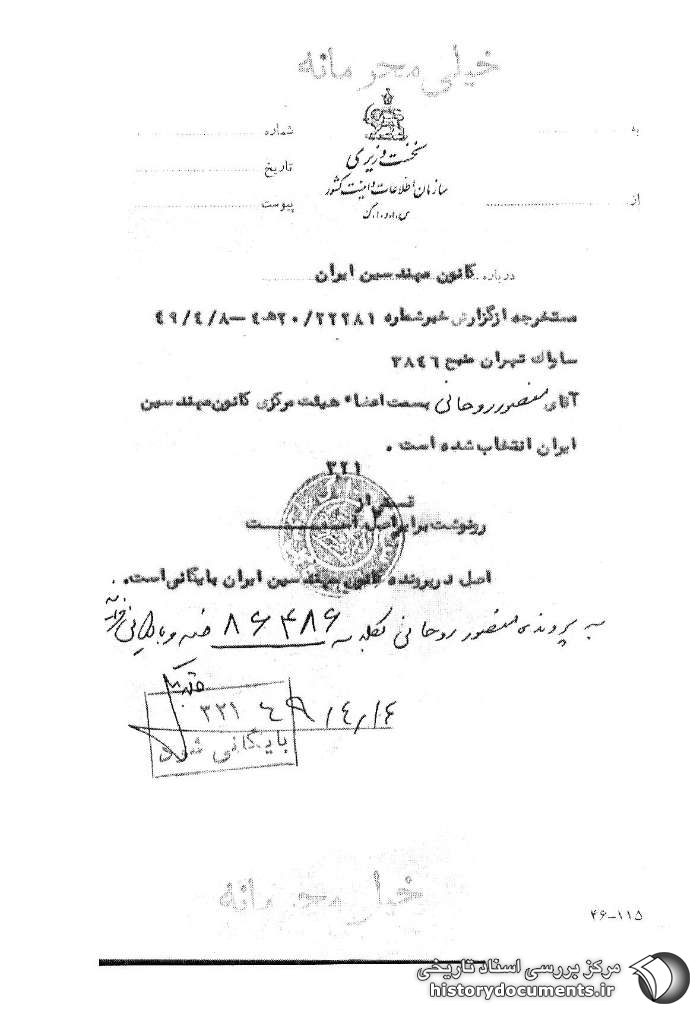 خیلی محرمانه
نخست وزیری
سازمان اطلاعات و امنیت کشور
س.ا.و.ا.ک
به
شماره
تاریخ
از
پیوست
درباره کانون مهندسین ایران
مستخرجه از گزارش خبر شماره ۲۲۲۸۱/۲۰ه۴-۴۹/۴/۸
ساواک تهران منبع ۳۸۴۶
آقای منصور روحانی بسمت اعضاء هیئت مرکزی کانون مهندسین
ایران انتخاب شده است.
۳۲۱
رونوشت برابر اصل است
اصل در پرونده کانون مهندسین ایران بایگانی است.
به پرونده منصور روحانی بکلاسه ۸۶۴۸۶
۴۹/۴/۱۶
۳۲۱
بایگانی شود
خیلی محرمانه
۴۶-۱۱۵
مرکز بررسی اسناد تاریخی
historydocuments.ir